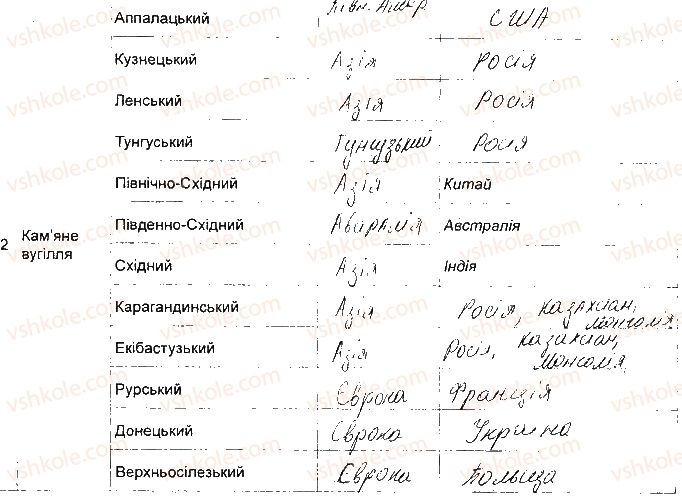 Аппалацький Півн. Амер. США
Кузнецький Азія Росія
Ленський Азія Росія
Тунгуський Тунгузький Росія
Північно-Східний Азія Китай
Південно-Східний Австралія Австралія
2 Кам'яне вугілля
Східний Азія Індія
Карагандинський Азія Росія, Казахстан, Монголія
Екібастузький Азія Росія, Казахстан, Монголія
Рурський Європа Франція
Донецький Європа Україна
Верхньосілезький Європа Польща